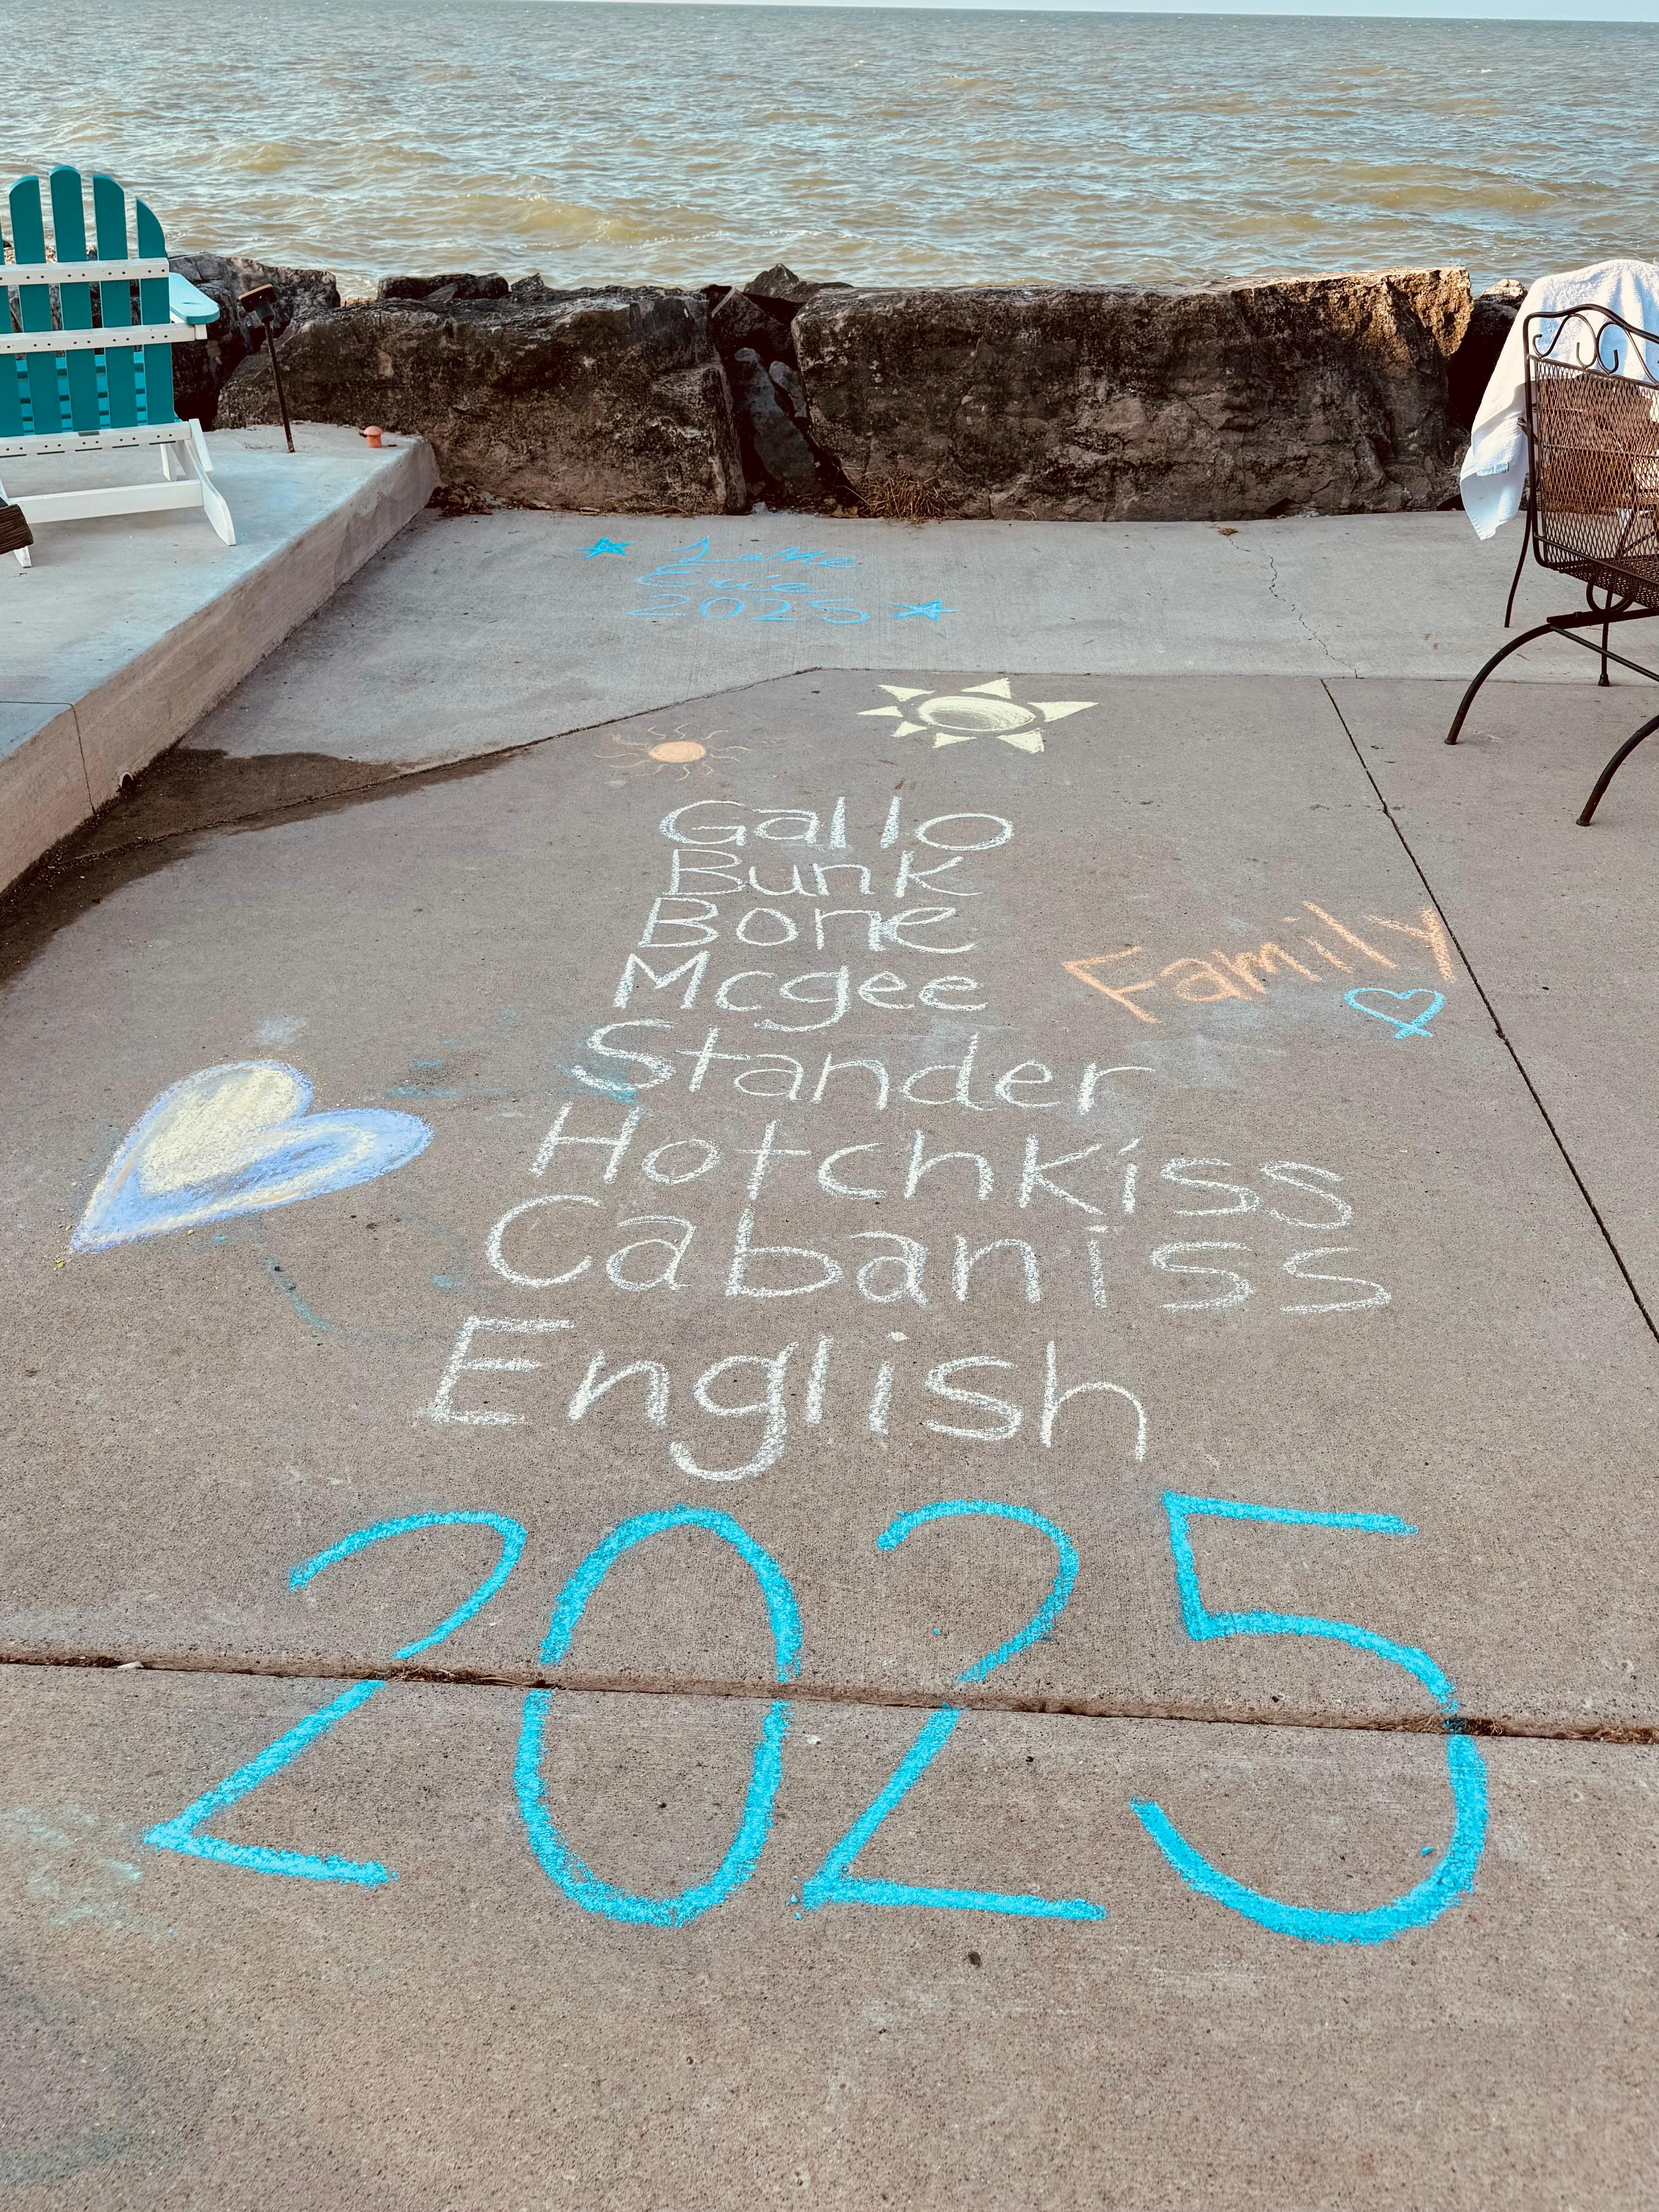 Lake
Erie
2025
Gallo
Bunk
Bone
Mcgee
Family
Stander
Hotchkiss
Cabaniss
English
2025